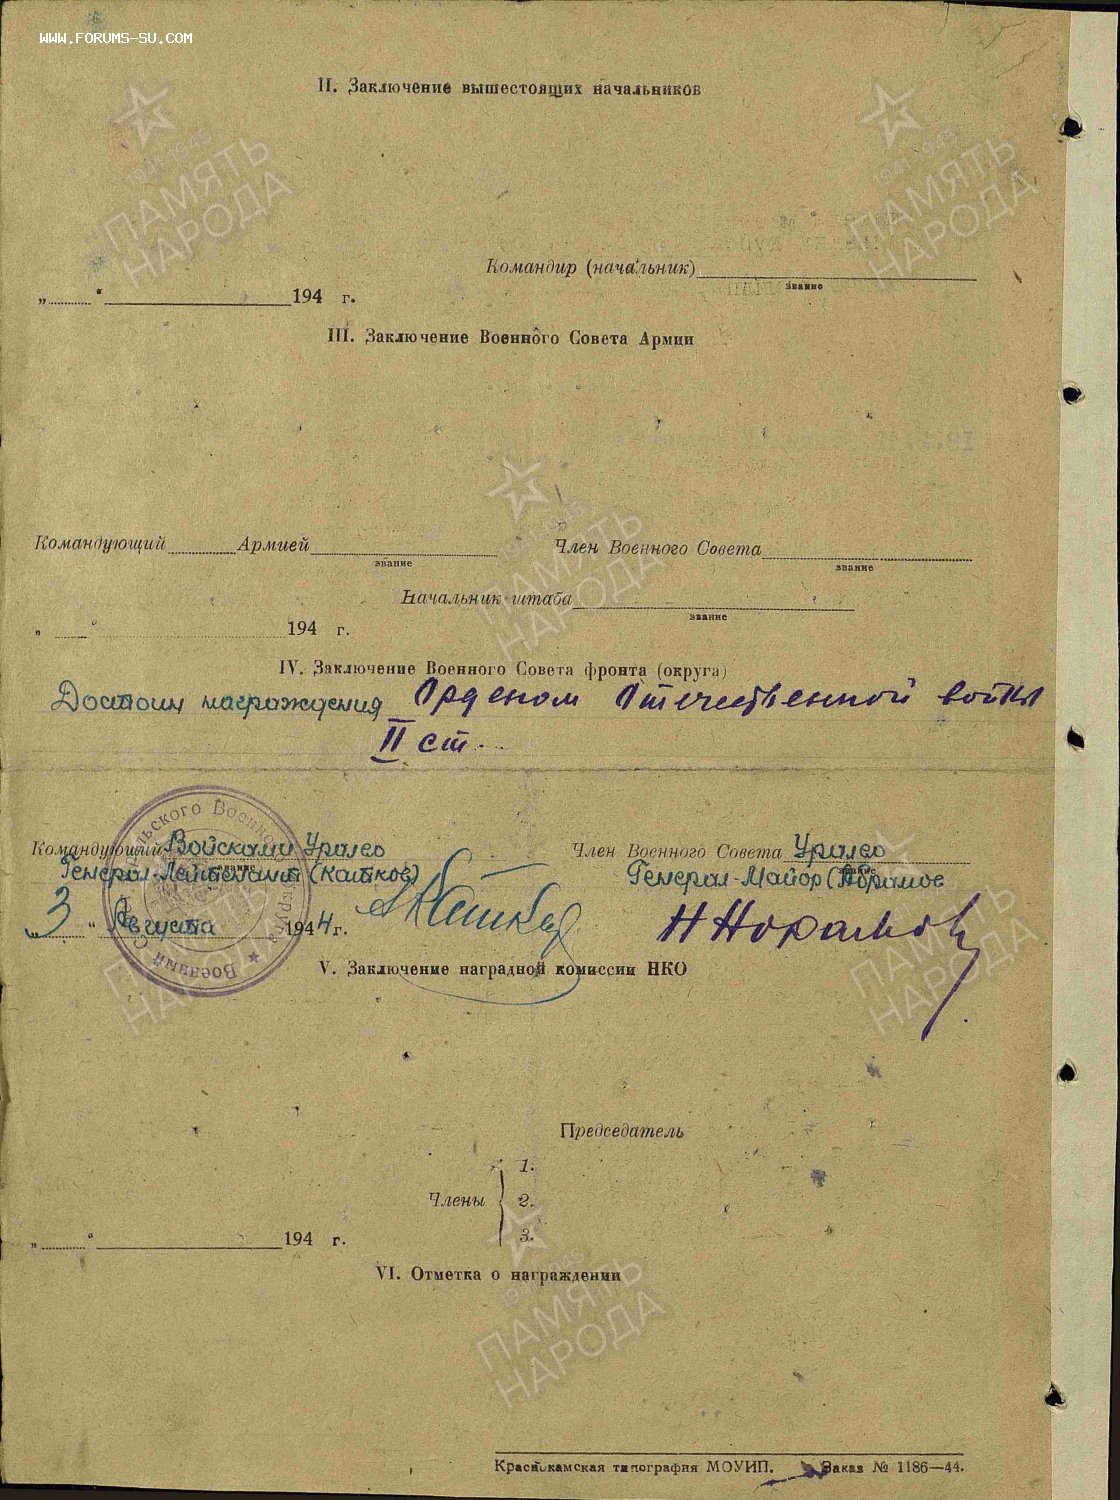 WWW.FORUMS-SU.COM
II. Заключение вышестоящих начальников
1941-1945
ПАМЯТЬ
НАРОДА
1941-1945
ПАМЯТЬ
НАРОДА
Командир (начальник)
звание
„ “ 194 г.
III. Заключение Военного Совета Армии
Командующий Армией
звание
Член Военного Совета
звание
ПАМЯТЬ
НАРОДА
Начальник штаба
звание
„ “ 194 г.
IV. Заключение Военного Совета фронта (округа)
Достоин награждения Орденом Отечественной войны
II ст.
Командующий Войсками УралВО
Генерал-Лейтенант (Катков)
звание
Член Военного Совета УралВО
Генерал-Майор (Абрамов
звание
„3“ Августа 1944 г.
V. Заключение наградной комиссии НКО
Председатель
Члены
1.
2.
3.
„ “ 194 г.
VI. Отметка о награждении
ПАМЯТЬ
НАРОДА
Краснокамская типография МОУИП. Заказ № 1186—44.